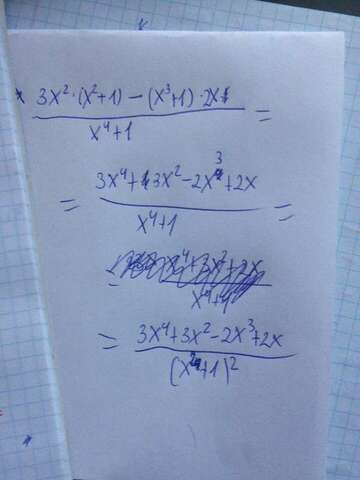 3x²·(x²+1) − (x³+1)·2x =
x⁴+1
= 3x⁴+3x²−2x³+2x =
x⁴+1
= 3x⁴+3x²−2x³+2x
(x²+1)²